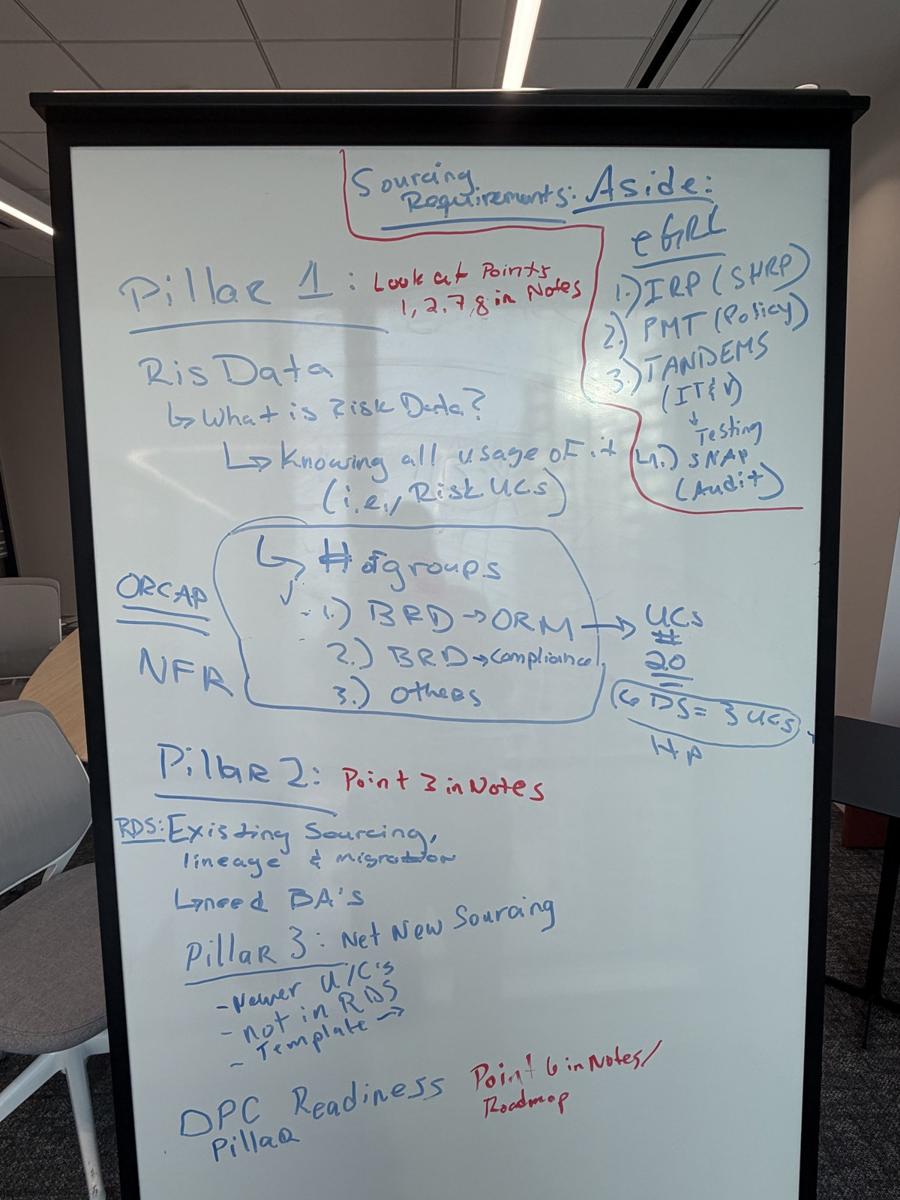 Sourcing
Requirements:
Aside:
eGRC
1.) IRP (SHRP)
2.) PMT (Policy)
3.) TANDEMS
(IT&V)
↓ Testing
4.) SNAP
(Audit)
Pillar 1: Look at Points
1, 2, 7, 8 in Notes
Ris Data
↳ What is Risk Data?
↳ Knowing all usage of it
(i.e., Risk UCs)
↳ # of groups
1.) BRD → ORM → UCs
2.) BRD → Compliance
3.) Others
ORCAP
NFR
#
20
(6 DS = 3 UCs
Pillar 2: Point 3 in Notes
RDS: Existing Sourcing,
lineage & migration
↳ need BA's
Pillar 3: Net New Sourcing
- Newer U/C's
- not in RDS
- Template →
DPC Readiness
Pillar
Point 6 in Notes/
Roadmap